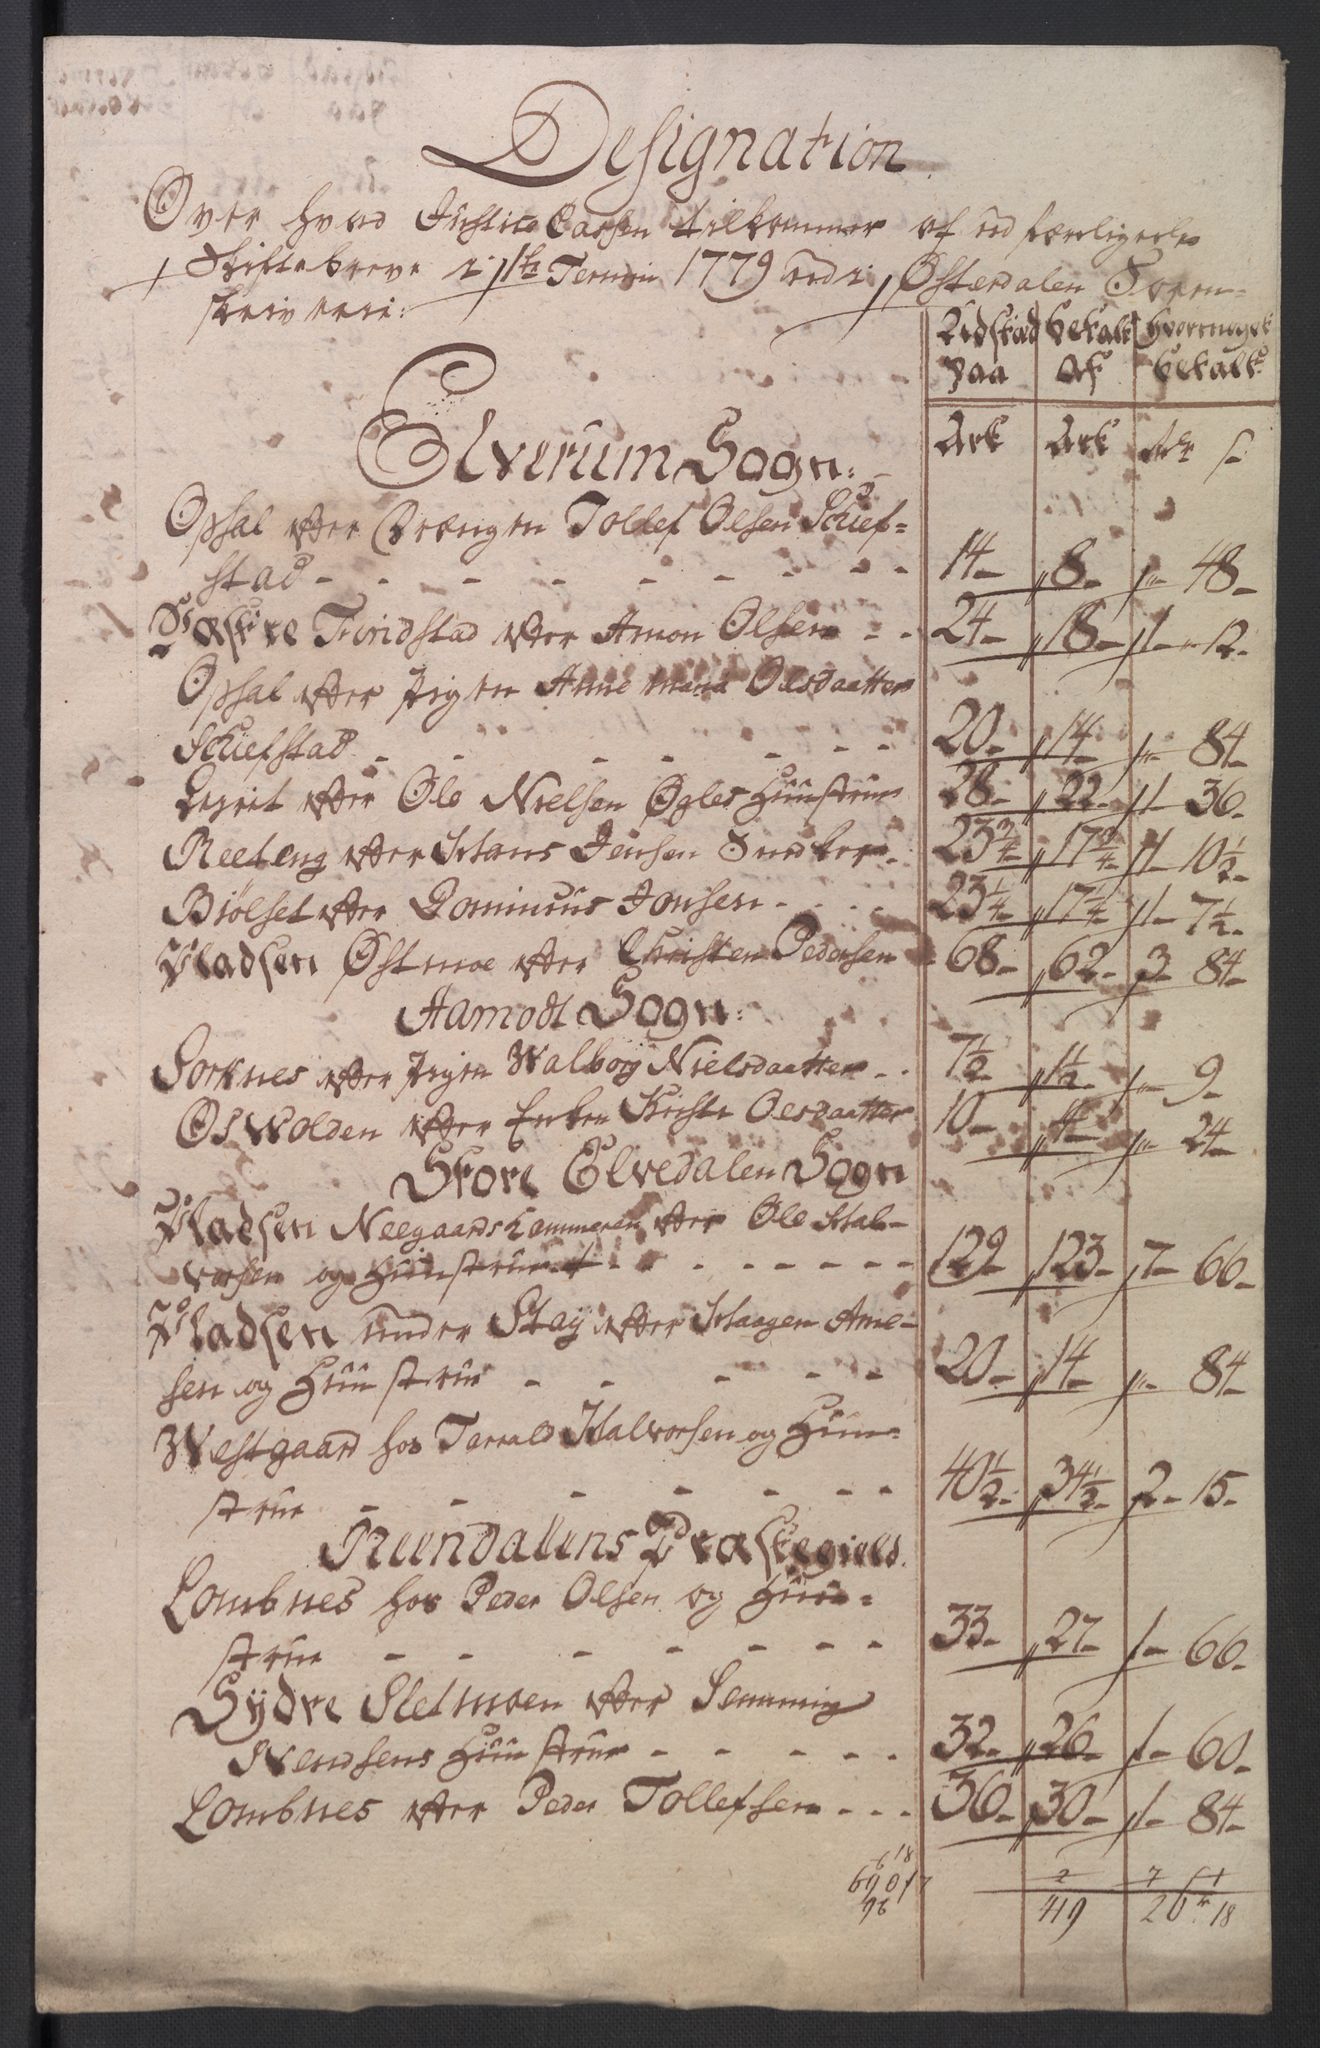 Designation
Over hvad Justice Cassen tilkommer af udfærdigede
Skiftebreve i 1ste Termin 1779 udi Østerdalens Soren-
skriverie:
Udstæd Betalt Hvormeget
paa Af betalt
Elverum Sogn: Ark Ark rdr s
Opsal efter Drængen Tollef Olsen Schief-
stad - - - - - - - - 14 - 8 - " - 48 -
Næstre Trondstad efter Amon Olsen - - 24 - 18 - 1 - 12 -
Opsal efter Pigen Anne Maria Olsdaatter
Schiefstad - - - - - - - 20 - 14 - " - 84 -
Løgrit efter Ole Nielsen Øgles Huustrue 28 - 22 - 1 - 36 -
Reeteng efter Hans Jensen Snedker - 23 3/4 - 17 3/4 - 1 - 10 1/2 -
Biølset efter Dominicus Jonsen - - - - 23 1/4 - 17 1/4 - 1 - 7 1/2 -
Pladsen Østmoe efter Christen Pedersen - 68 - 62 - 3 - 84 -
Aamodt Sogn:
Sorknes efter Pigen Walborg Nielsdaatter - - 7 1/2 - 1 1/2 - " - 9 -
Øswolden efter Enken Kirsti Olsdaatter 10 - 4 - " - 24 -
Store Elvedalen Sogn
Pladsen Neegaards Hammeren efter Ole Hal-
vorsen og Huustrue - - - - - - - - 129 - 123 - 7 - 66 -
Pladsen under Staj efter Haagen Arne-
sen og Huustrue - - - - - 20 - 14 - " - 84 -
Westgaard hos Tarrald Halvorsen og Huu-
strue - - - - - - - 40 1/2 - 34 1/2 - 2 - 15 -
Reendalens Præstegield.
Lombnes hos Peder Olsen og Huu-
strue - - - - - - - 33 - 27 - 1 - 66 -
Sÿdre Sletmoen efter Semming
Svendsens Huustrue - - - - - 32 - 26 - 1 - 60 -
Lombnes efter Peder Tollefsen - - - 36 - 30 - 1 - 84 -
618
690 17 2 7 1
96 419 26 " 18